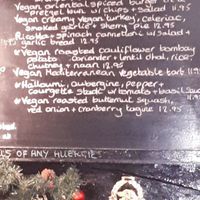 Vegan oriental spiced burger
pretzel bun w/ chips + salad 11.95
Vegan creamy vegan turkey, celeriac,
smoked garlic + sherry pie 12.95
Ricotta + spinach cannelloni w/ salad +
garlic bread 12.95
Vegan roasted cauliflower bombay
potato coriander + lentil dhal, rice,
chutney + naan 12.95
Vegan Mediterranean vegetable tart 11.
Halloumi, aubergine, pepper +
courgette stack w/ tomato + basil sauce
Vegan roasted butternut squash,
red onion + cranberry tagine 12.95
OF ANY ALLERGIES